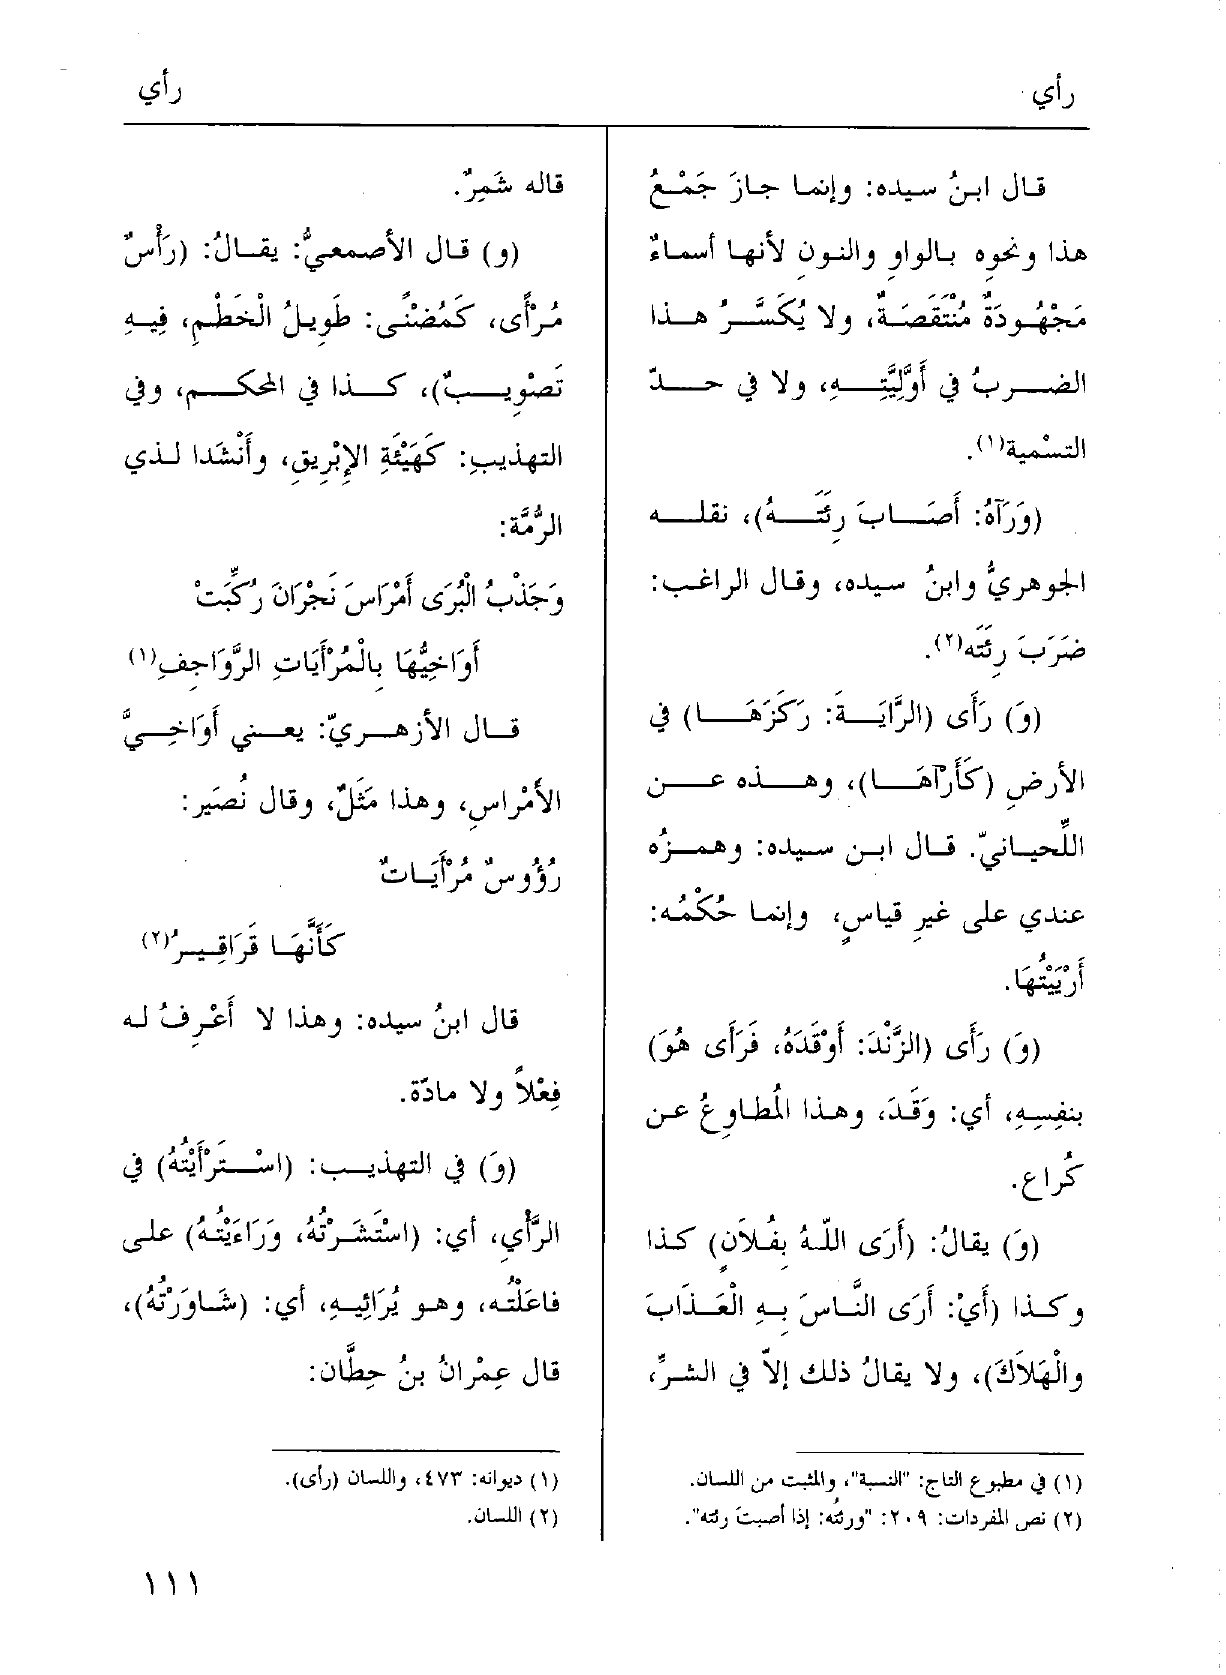 رأي
رأي
قال ابنُ سيده: وإنما جازَ جَمْعُ
هذا ونحوه بالواوِ والنونِ لأنها أسماءٌ
مَجْهُودَةٌ مُنْتَقَصَةٌ، ولا يُكَسَّرُ هذا
الضربُ في أَوَّلِيَّتِهِ، ولا في حدّ
التسْمية(١).
(وَرَآهُ: أَصَابَ رِئَتَهُ)، نقله
الجوهريُّ وابنُ سيده، وقال الراغب:
ضَرَبَ رِئَتَه(٢).
(وَ) رَأَى (الرَّايَةَ: رَكَزَهَا) في
الأرضِ (كَأَرْآهَا)، وهذه عن
اللِّحيانيّ. قال ابن سيده: وهمزُه
عندي على غيرِ قياسٍ، وإنما حُكْمُه:
أَرْيَيْتُهَا.
(وَ) رَأَى (الزَّنْدَ: أَوْقَدَهُ، فَرَأَى هُوَ)
بنفِسِهِ، أي: وَقَدَ، وهذا المُطاوِعُ عن
كُراع.
(وَ) يقالُ: (أَرَى اللّهُ بِفُلاَنٍ) كذا
وكذا (أَيْ: أَرَى النَّاسَ بِهِ الْعَذَابَ
والْهَلاَكَ)، ولا يقالُ ذلك إلاّ في الشرِّ،
(١) في مطبوع التاج: "النسبة"، والمثبت من اللسان.
(٢) نص المفردات: ٢٠٩: "ورئتُه: إذا أصبتَ رئته".
قاله شَمِرٌ.
(و) قال الأصمعيُّ: يقالُ: (رَأْسٌ
مُرْأًى، كَمُضْنًى: طَوِيلُ الْخَطْمِ، فِيهِ
تَصْوِيبٌ)، كذا في المحكم، وفي
التهذيبِ: كَهَيْئَةِ الإِبْرِيقِ، وأَنْشَدا لذي
الرُّمَّة:
وَجَذْبُ الْبُرَى أَمْرَاسَ نَجْرَانَ رُكِّبَتْ
أَوَاخِيُّهَا بِالْمُرْأَيَاتِ الرَّوَاجِفِ(١)
قال الأزهريّ: يعني أَوَاخِيَّ
الأمْراسِ، وهذا مَثَلٌ، وقال نُصَير:
رُؤُوسٌ مُرْأَيَاتٌ
كَأَنَّهَا قَرَاقِيرُ(٢)
قال ابنُ سيده: وهذا لا أَعْرِفُ له
فِعْلاً ولا مادّة.
(وَ) في التهذيب: (اسْتَرْأَيْتُهُ) في
الرَّأيِ، أي: (اسْتَشَرْتُهُ، وَرَاءَيْتُهُ) على
فاعَلْتُه، وهو يُرَائِيهِ، أي: (شَاوَرْتُهُ)،
قال عِمْرانُ بنُ حِطَّان:
(١) ديوانه: ٤٧٣، واللسان (رأى).
(٢) اللسان.
١١١